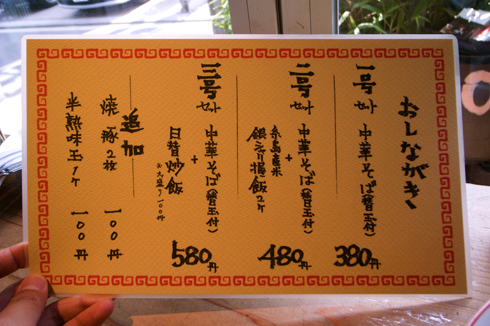 おしながき
一号セット 中華そば(替玉付) 380円
二号セット 中華そば(替玉付)
+
糸島産米
銀シャリ握飯2ケ
480円
三号セット 中華そば(替玉付)
+
日替炒飯
※大盛り一〇〇円
580円
追加
焼豚2枚 一〇〇円
半熟味玉1ヶ 一〇〇円